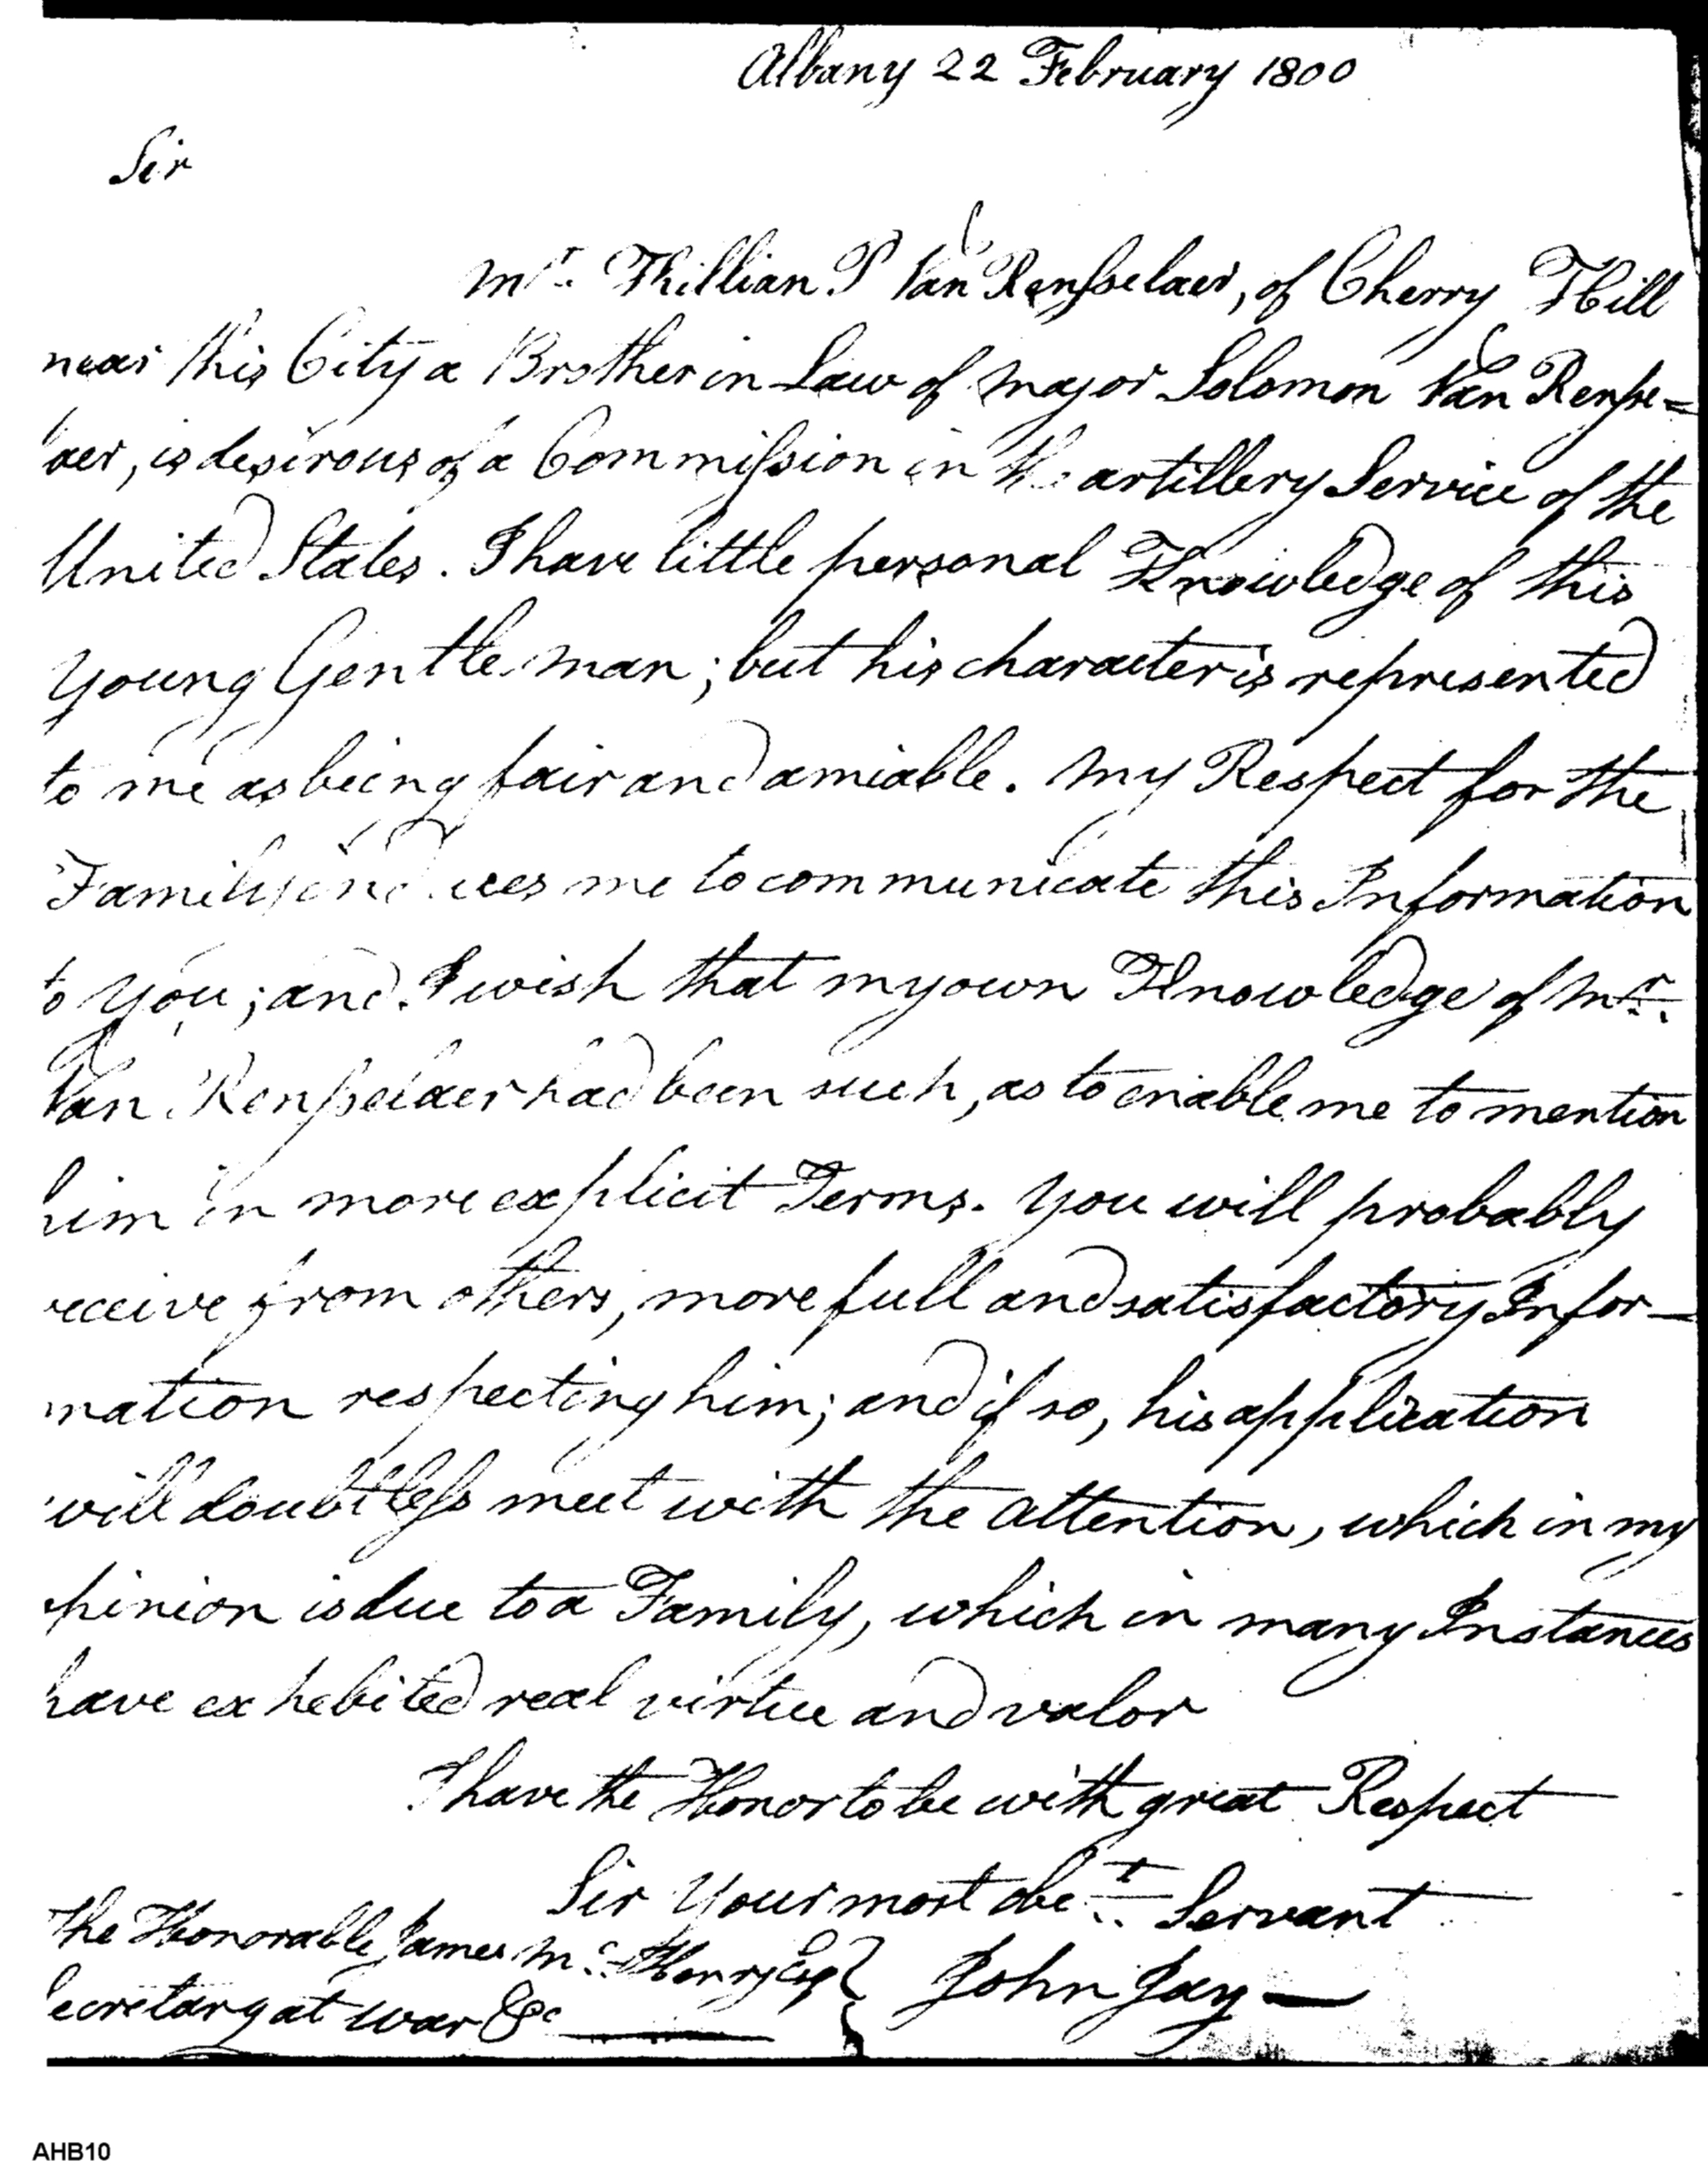 Albany 22 February 1800
Sir
Mr. Killian P Van Rensselaer, of Cherry Hill
near this City a Brother in Law of Major Solomon Van Rensse=
laer, is desirous of a Commission in the artillery Service of the
United States. I have little personal Knowledge of this
young Gentleman; but his character is represented
to me as being fair and amiable. My Respect for the
Family induces me to communicate this Information
to you; and I wish that my own Knowledge of Mr.
Van Rensselaer had been such, as to enable me to mention
him in more explicit Terms. You will probably
receive from others, more full and satisfactory Infor-
mation respecting him; and if so, his application
will doubtless meet with the attention, which in my
opinion is due to a Family, which in many Instances
have exhebited real virtue and valor
I have the Honor to be with great Respect
Sir Your most obet. Servant
The Honorable James Mc.Henry Esqr
Secretary at War &c
John Jay
AHB10